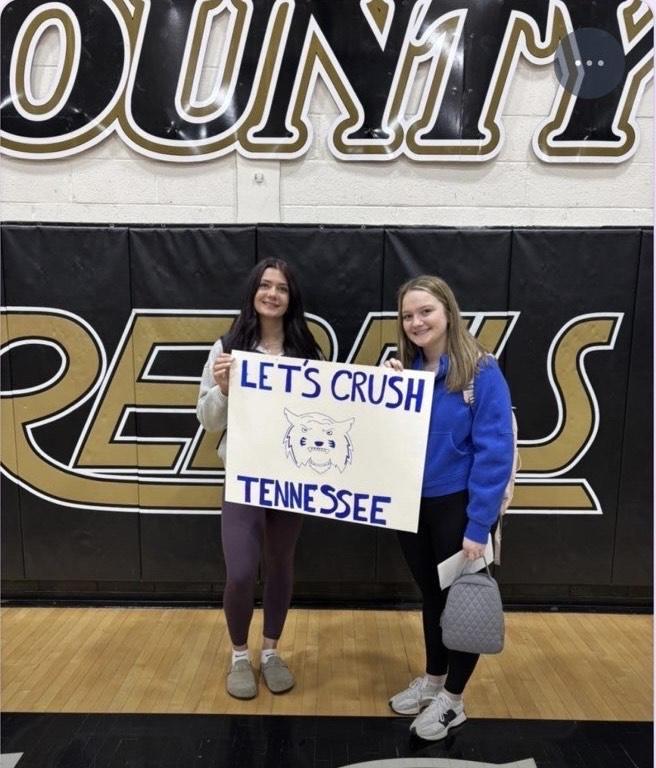 OUNTY
REBELS
LET'S CRUSH
TENNESSEE